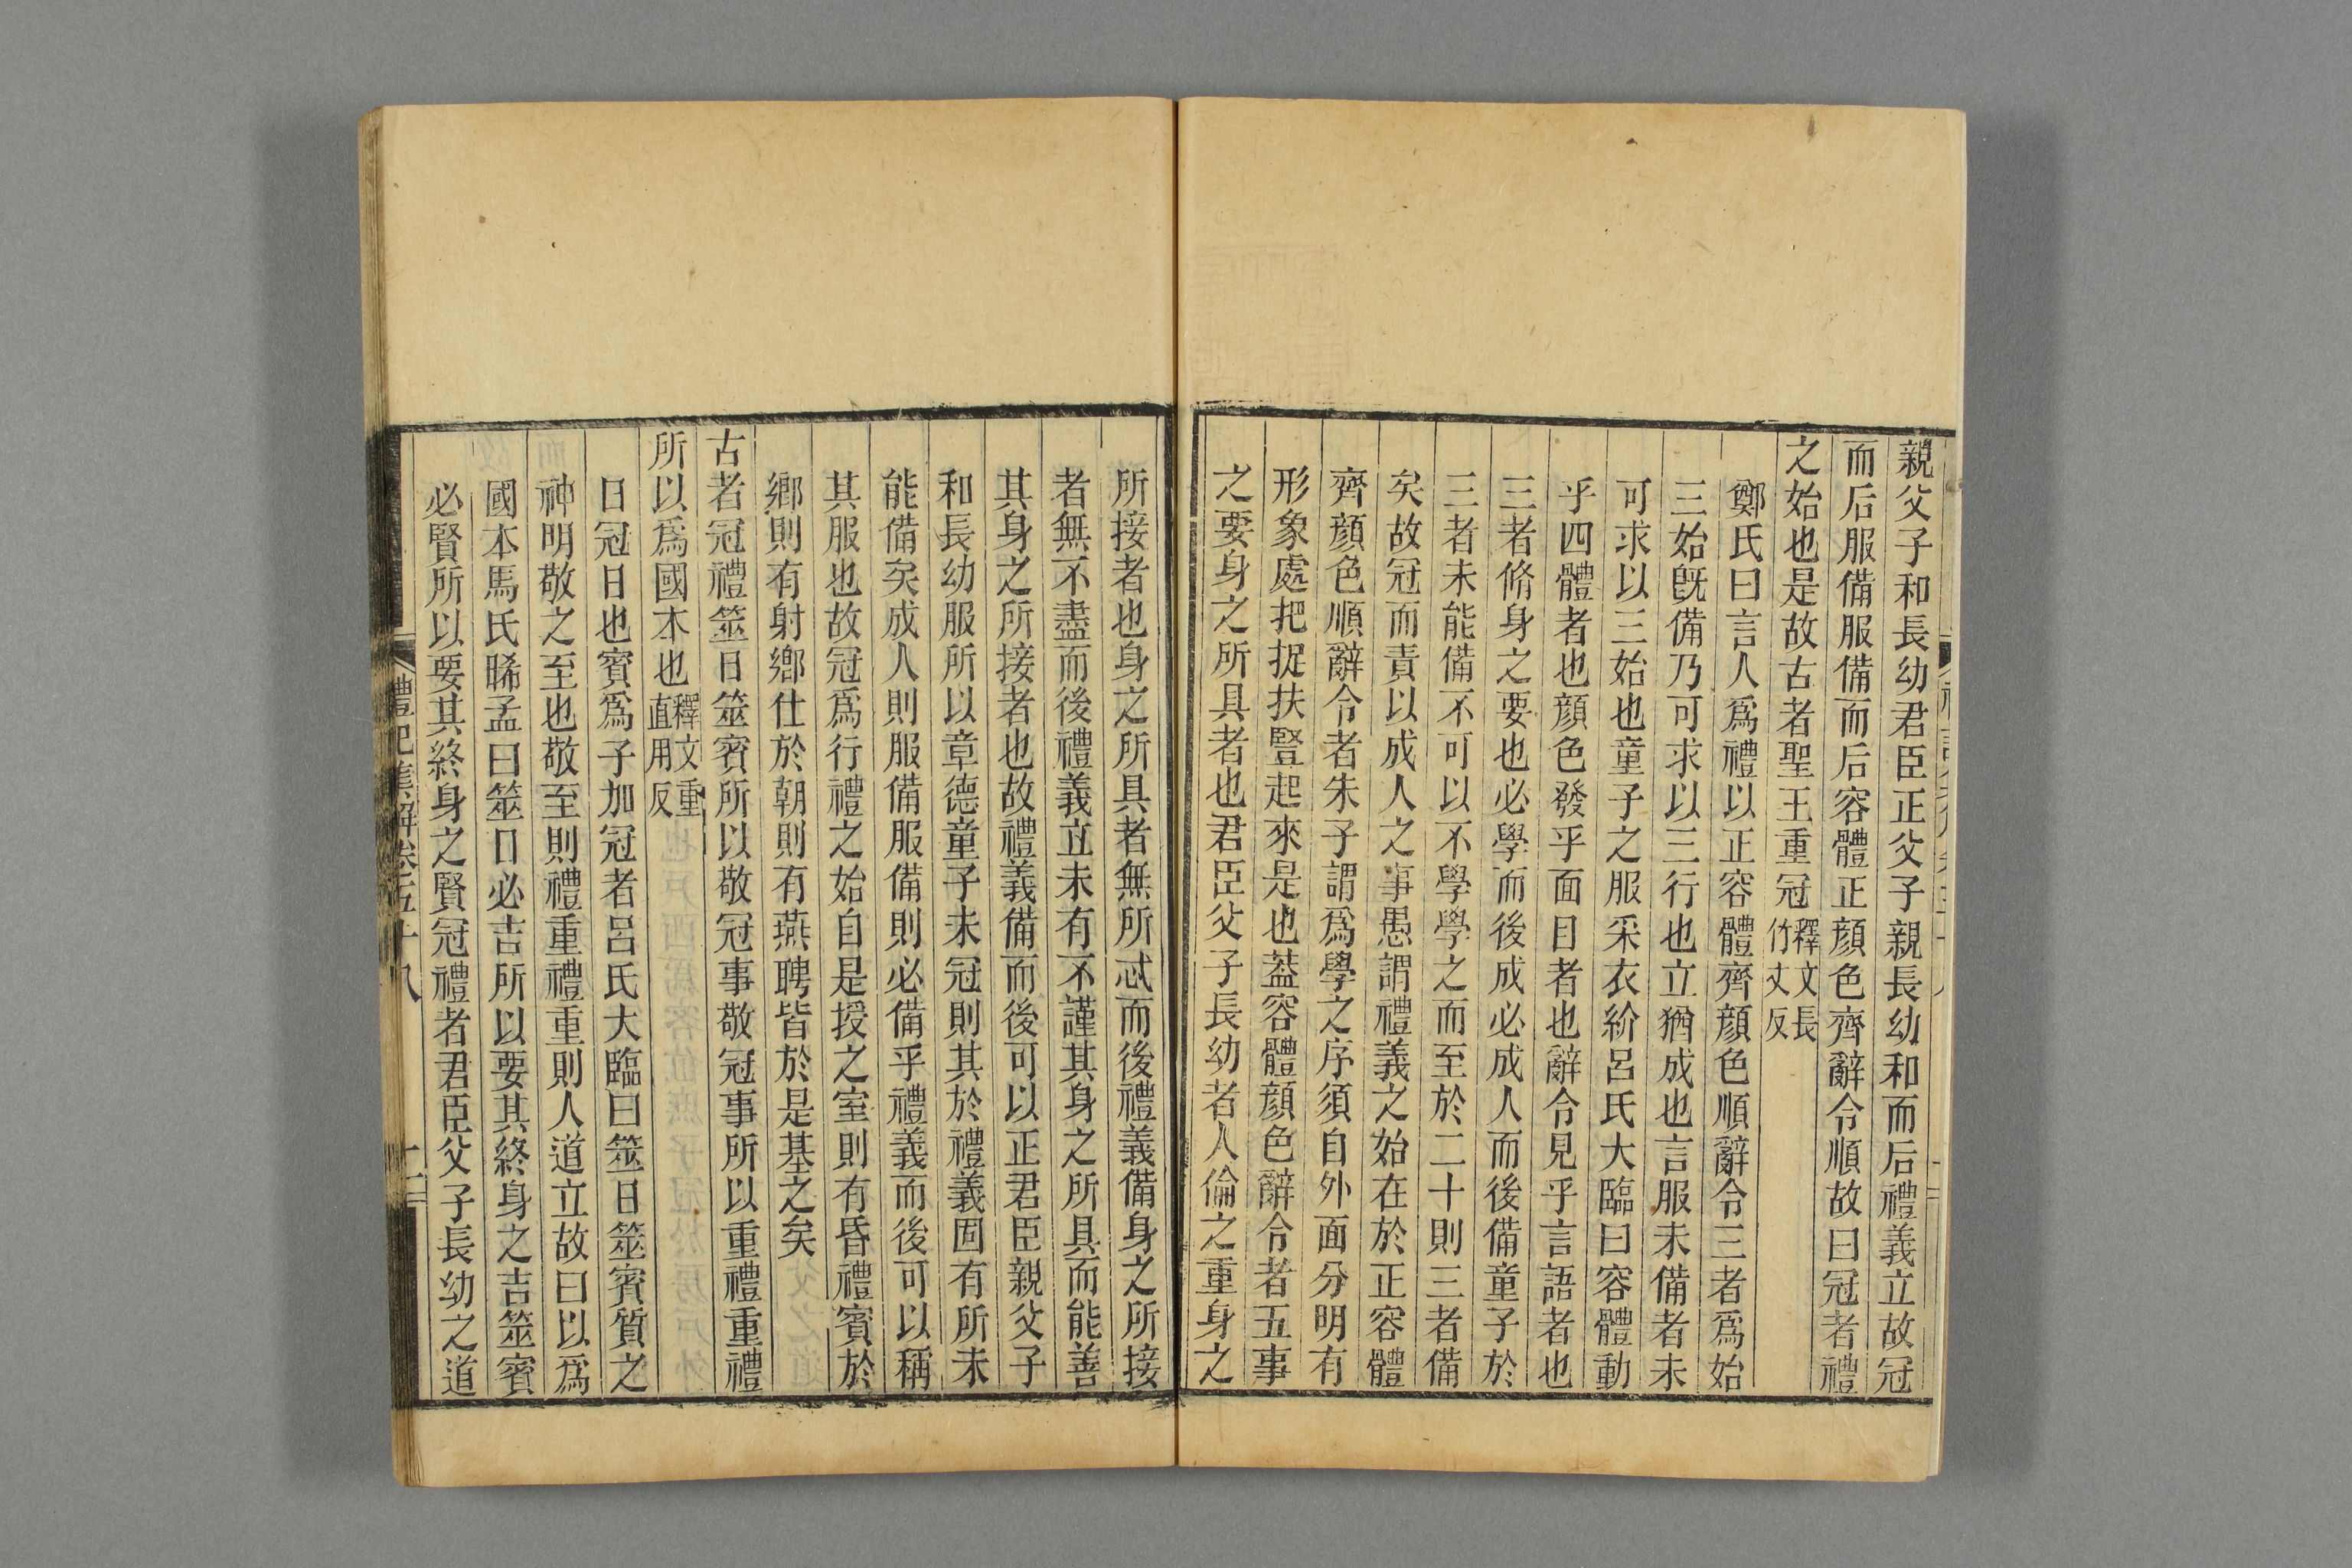 親父子和長幼君臣正父子親長幼和而后禮義立故冠
而后服備服備而后容體正顔色齊辭令順故曰冠者禮
之始也是故古者聖王重冠釋文長竹丈反
鄭氏曰言人爲禮以正容體齊顔色順辭令三者爲始
三始旣備乃可求以三行也立猶成也言服未備者未
可求以三始也童子之服采衣紒呂氏大臨曰容體動
乎四體者也顔色發乎面目者也辭令見乎言語者也
三者脩身之要也必學而後成必成人而後備童子於
三者未能備不可以不學學之而至於二十則三者備
矣故冠而責以成人之事愚謂禮義之始在於正容體
齊顔色順辭令者朱子謂爲學之序須自外面分明有
形象處把捉扶豎起來是也葢容體顔色辭令者五事
之要身之所具者也君臣父子長幼者人倫之重身之
所接者也身之所具者無所忒而後禮義備身之所接
者無不盡而後禮義立未有不謹其身之所具而能善
其身之所接者也故禮義備而後可以正君臣親父子
和長幼服所以章德童子未冠則其於禮義固有所未
能備矣成人則服備服備則必備乎禮義而後可以稱
其服也故冠爲行禮之始自是授之室則有昏禮賓於
鄉則有射鄉仕於朝則有燕聘皆於是基之矣
古者冠禮筮日筮賓所以敬冠事敬冠事所以重禮重禮
所以爲國本也釋文重直用反
日冠日也賓爲子加冠者呂氏大臨曰筮日筮賓質之
神明敬之至也敬至則禮重禮重則人道立故曰以爲
國本馬氏晞孟曰筮日必吉所以要其終身之吉筮賓
必賢所以要其終身之賢冠禮者君臣父子長幼之道
禮記集解卷五十八 十二